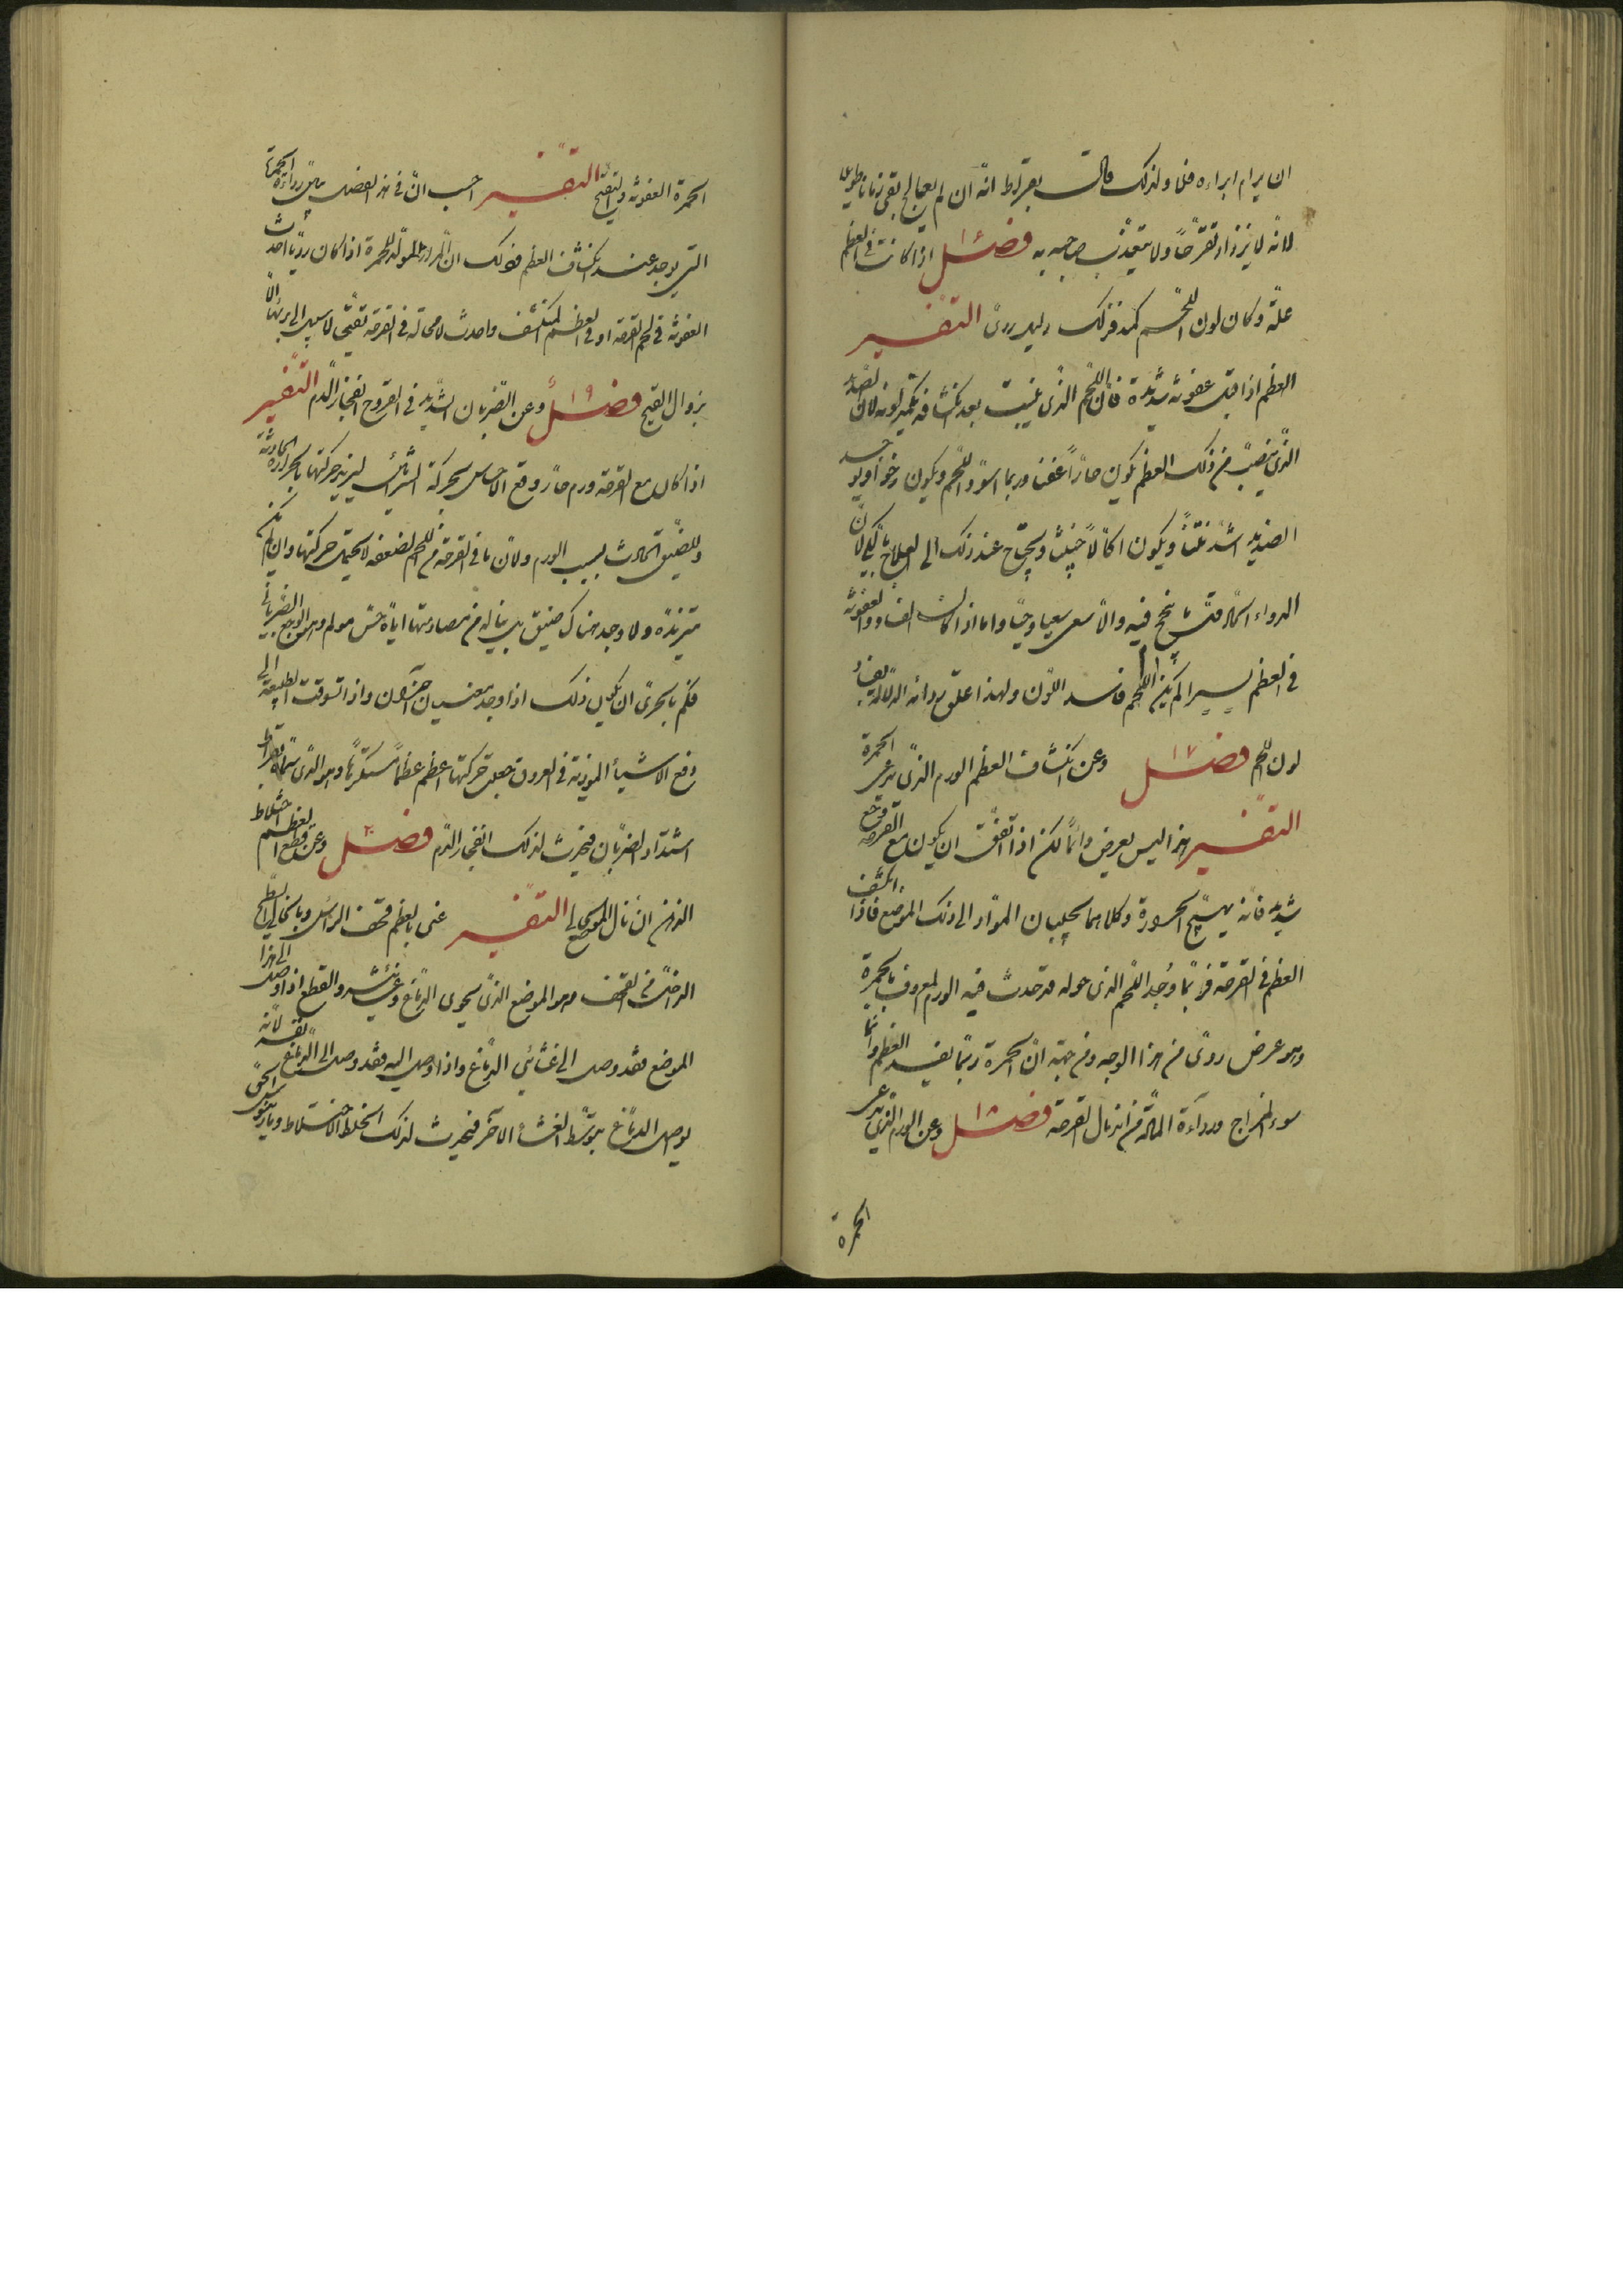 ان يرام ابراءه فلا ولذلك قال بقراط انه ان لم يعالج بقى زمانا طويلا
لانه لا يزداد تقرّحًا ولا يتعذّب صاحبه به فصل ١٦ اذا كانت فى العظم
علّة وكان لون اللحم كمدا فذلك دليل ردى التفسير
العظم اذا قبل عفونة شديدة فان اللحم الذى ينبت بعد انكشافه يكمد لونه لان الصديد
الذى ينصبّ من ذلك العظم يكون حارًّا عفنا وربما اسودّ اللحم ويكون رخوا ويوجد
الصديد اشد نتنًا ويكون اكّالًا خبيثا ويحتاج عند ذلك الى العلاج بالكى لان
الدواء الحاد قلّ ما ينجح فيه والّا سعى سعيا وحيًّا واما اذا كانت الفساد والعفونة
فى العظم يسيرا لم يكن اللحم فاسد اللون ولهذا علق رداءة الدلالة بفساد
لون اللحم فصل ١٧ وعن انكشاف العظم الورم الذى يدعى الحمرة
التفسير هذا ليس يعرض دائما لكن اذا اتفق ان يكون مع القرحة وجع
شديد فانه يهيّج الحرارة وكلاهما يجلبان الموادّ الى ذلك الموضع فاذا انكشف
العظم فى القرحة فربّما وُجد اللحم الذى حوله قد حدث فيه الورم المعروف بالحمرة
وهو عرض ردى من هذا الوجه ومن جهة انّ الحمرة ربّما يفسد العظم وانما
سوء المزاج ورداءة المادّة من اندمال القرحة فصل ١٨ وعن الورم الذى يدعى
الحمرة
الحمرة العفونة والتقيّح التفسير احسب انّ فى هذا الفصل بيّن رداءة الحمرة
التى يوجد عند انكشاف العظم وذلك ان المرار المولّد للحمرة اذا كان رديّا احدث
العفونة فى لحم القرحة او فى العظم المنكشف واحدث لا محالة فى القرحة تقيّح لا سبيل الى برئها الّا
بزوال القيح فصل ١٩ وعن الضربان الشديد فى القروح انفجار الدم التفسير
اذا كان مع القرحة ورم حارّ وقع الاحساس بحركة الشرائين ليزيد حركتها بالحرارة الحادثة
وللضيق الحادث بسبب الورم ولان ما فى القرحة من اللحم لضعفه لا يحتمل حركتها وان لم يكن
متزيّدة ولا وجد هناك ضيق بل يناله من مصادمتها اياه حسّ مولم وهو الوجع الضربانى
فكم بالحرى ان يكون ذلك اذا وجد معنيين آخرين واذا تشوقت الطبيعة الى
دفع الاشياء الموذية فى العروق جعلت حركتها اعظم عظمًا مستكرهًا وهو الذى سمّاه بقراط
اشتداد الضربان فيحدث لذلك انفجار الدم فصل ٢٠ وعن قطع العظم اختلاط
الذهن ان نال الموضع الخالى التفسير عنى بالعظم قحف الراس وبالخالى السطح
الداخل من القحف وهو الموضع الذى يحوى الدماغ وغشائيه والقطع اذا وصل الى هذا
الموضع فقد وصل الى غشائى الدماغ واذا وصل اليه فقد وصل الى الدماغ نفسه لانه
يوصل الدماغ بتوسّط الغشاء الآخر فيحدث لذلك الاختلاط